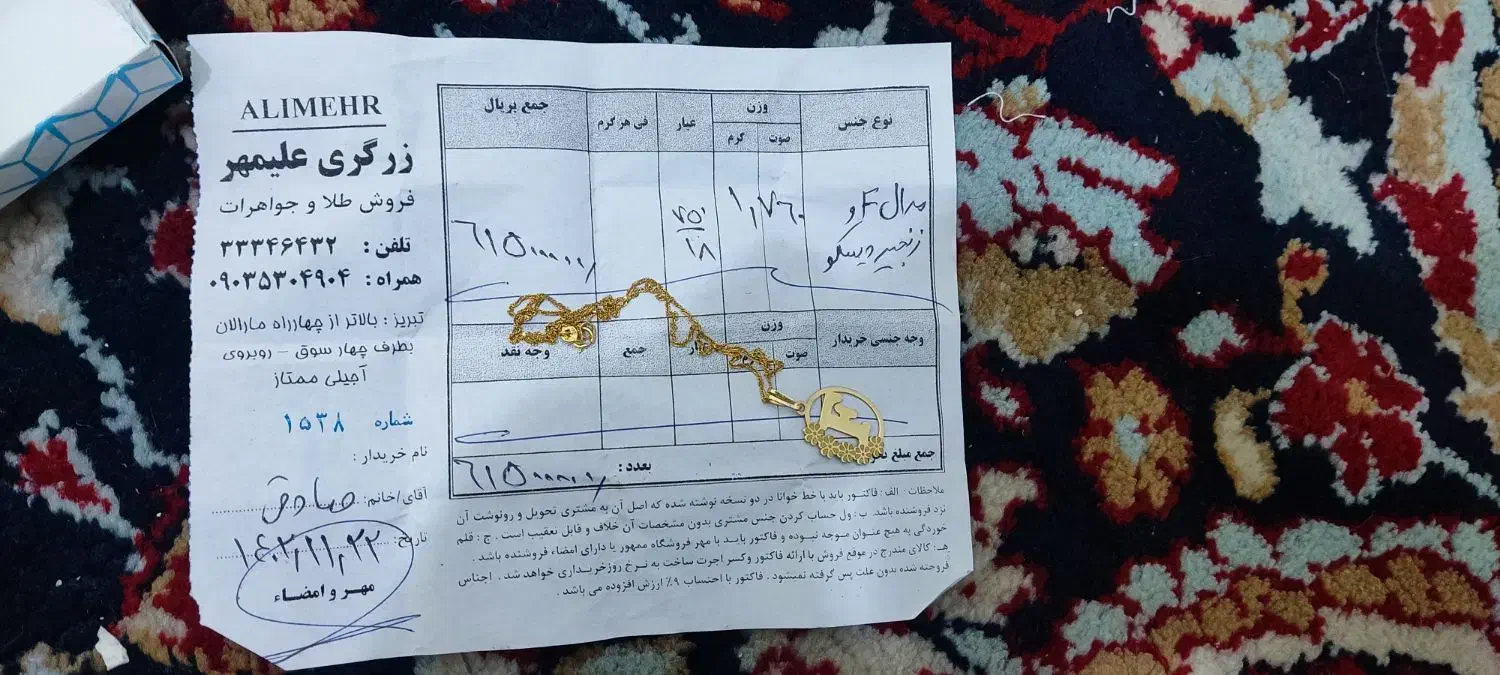 ALIMEHR
زرگری علیمهر
فروش طلا و جواهرات
تلفن : ۳۳۳۴۶۴۳۲
همراه : ۰۹۰۳۵۳۰۴۹۰۴
تبریز : بالاتر از چهارراه مارالان
بطرف چهار سوق - روبروی
آجیلی ممتاز
شماره ۱۵۳۸
نام خریدار :
آقای/خانم: صادق
تاریخ: ۱۴۰۲,۱۱,۲۲
مهر و امضاء
نوع جنس وزن عیار فی هر گرم جمع بریال
صوت گرم
مدال F و
زنجیر دیسکو
۱,۷۶۰
۷۵۰
۱۸
وجه جنسی خریدار وزن جمع وجه نقد
صوت
جمع مبلغ بعدد :
ملاحظات : الف : فاکتور باید با خط خوانا در دو نسخه نوشته شده که اصل آن به مشتری تحویل و رونوشت آن
نزد فروشنده باشد. ب : ول حساب کردن جنس مشتری بدون مشخصات آن خلاف و قابل تعقیب است . ج : قلم
خوردگی به هیچ عنوان موجه نبوده و فاکتور باید با مهر فروشگاه ممهور یا دارای امضاء فروشنده باشد .
هـ: کالای مندرج در موقع فروش با ارائه فاکتور وکسر اجرت ساخت به نرخ روز خریداری خواهد شد . اجناس
فروخته شده بدون علت پس گرفته نمیشود . فاکتور با احتساب ۹٪ ارزش افزوده می باشد .